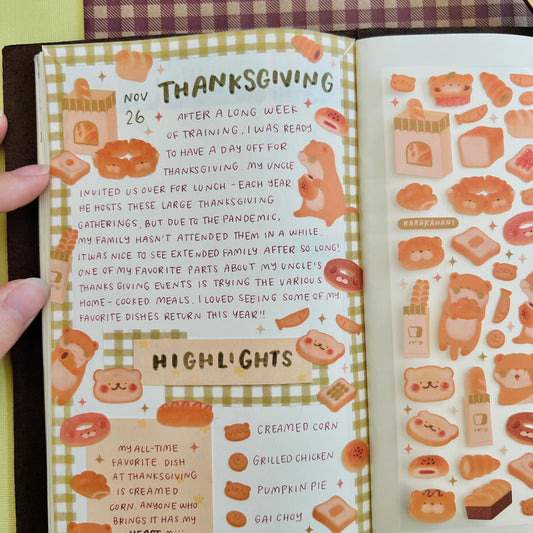 NOV
26
THANKSGIVING
AFTER A LONG WEEK
OF TRAINING, I WAS READY
TO HAVE A DAY OFF FOR
THANKSGIVING. MY UNCLE
INVITED US OVER FOR LUNCH - EACH YEAR
HE HOSTS THESE LARGE THANKSGIVING
GATHERINGS, BUT DUE TO THE PANDEMIC,
MY FAMILY HASN'T ATTENDED THEM IN A WHILE.
IT WAS NICE TO SEE EXTENDED FAMILY AFTER SO LONG!
ONE OF MY FAVORITE PARTS ABOUT MY UNCLE'S
THANKSGIVING EVENTS IS TRYING THE VARIOUS
HOME-COOKED MEALS. I LOVED SEEING SOME OF MY
FAVORITE DISHES RETURN THIS YEAR!!
HIGHLIGHTS
MY ALL-TIME
FAVORITE DISH
AT THANKSGIVING
IS CREAMED
CORN. ANYONE WHO
BRINGS IT HAS MY
HEART
CREAMED CORN
GRILLED CHICKEN
PUMPKIN PIE
GAI CHOY
KARAKANANI
パン